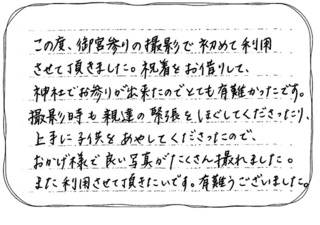 この度、御宮参りの撮影で初めて利用
させて頂きました。祝着をお借りして、
神社でお参りが出来たのでとても有難かったです。
撮影時も親達の緊張をほぐしてくださったり、
上手に子供をあやしてくださったので、
おかげ様で良い写真がたくさん撮れました。
また利用させて頂きたいです。有難うございました。